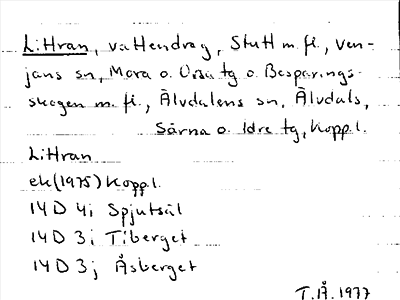 L:Hran, vattendrag, Stutt m. fi., Ven-
jans sn, Mora o. Orsa tg o. Besparings-
skogen m. fi., Älvdalens sn, Älvdals,
Särna o. Idre tg, Koppl.
L:Hran
ek(1975) Koppl.
14 D 4i Spjutsäl
14 D 3i Tiberget
14 D 3j Åsberget
T.Å. 1977